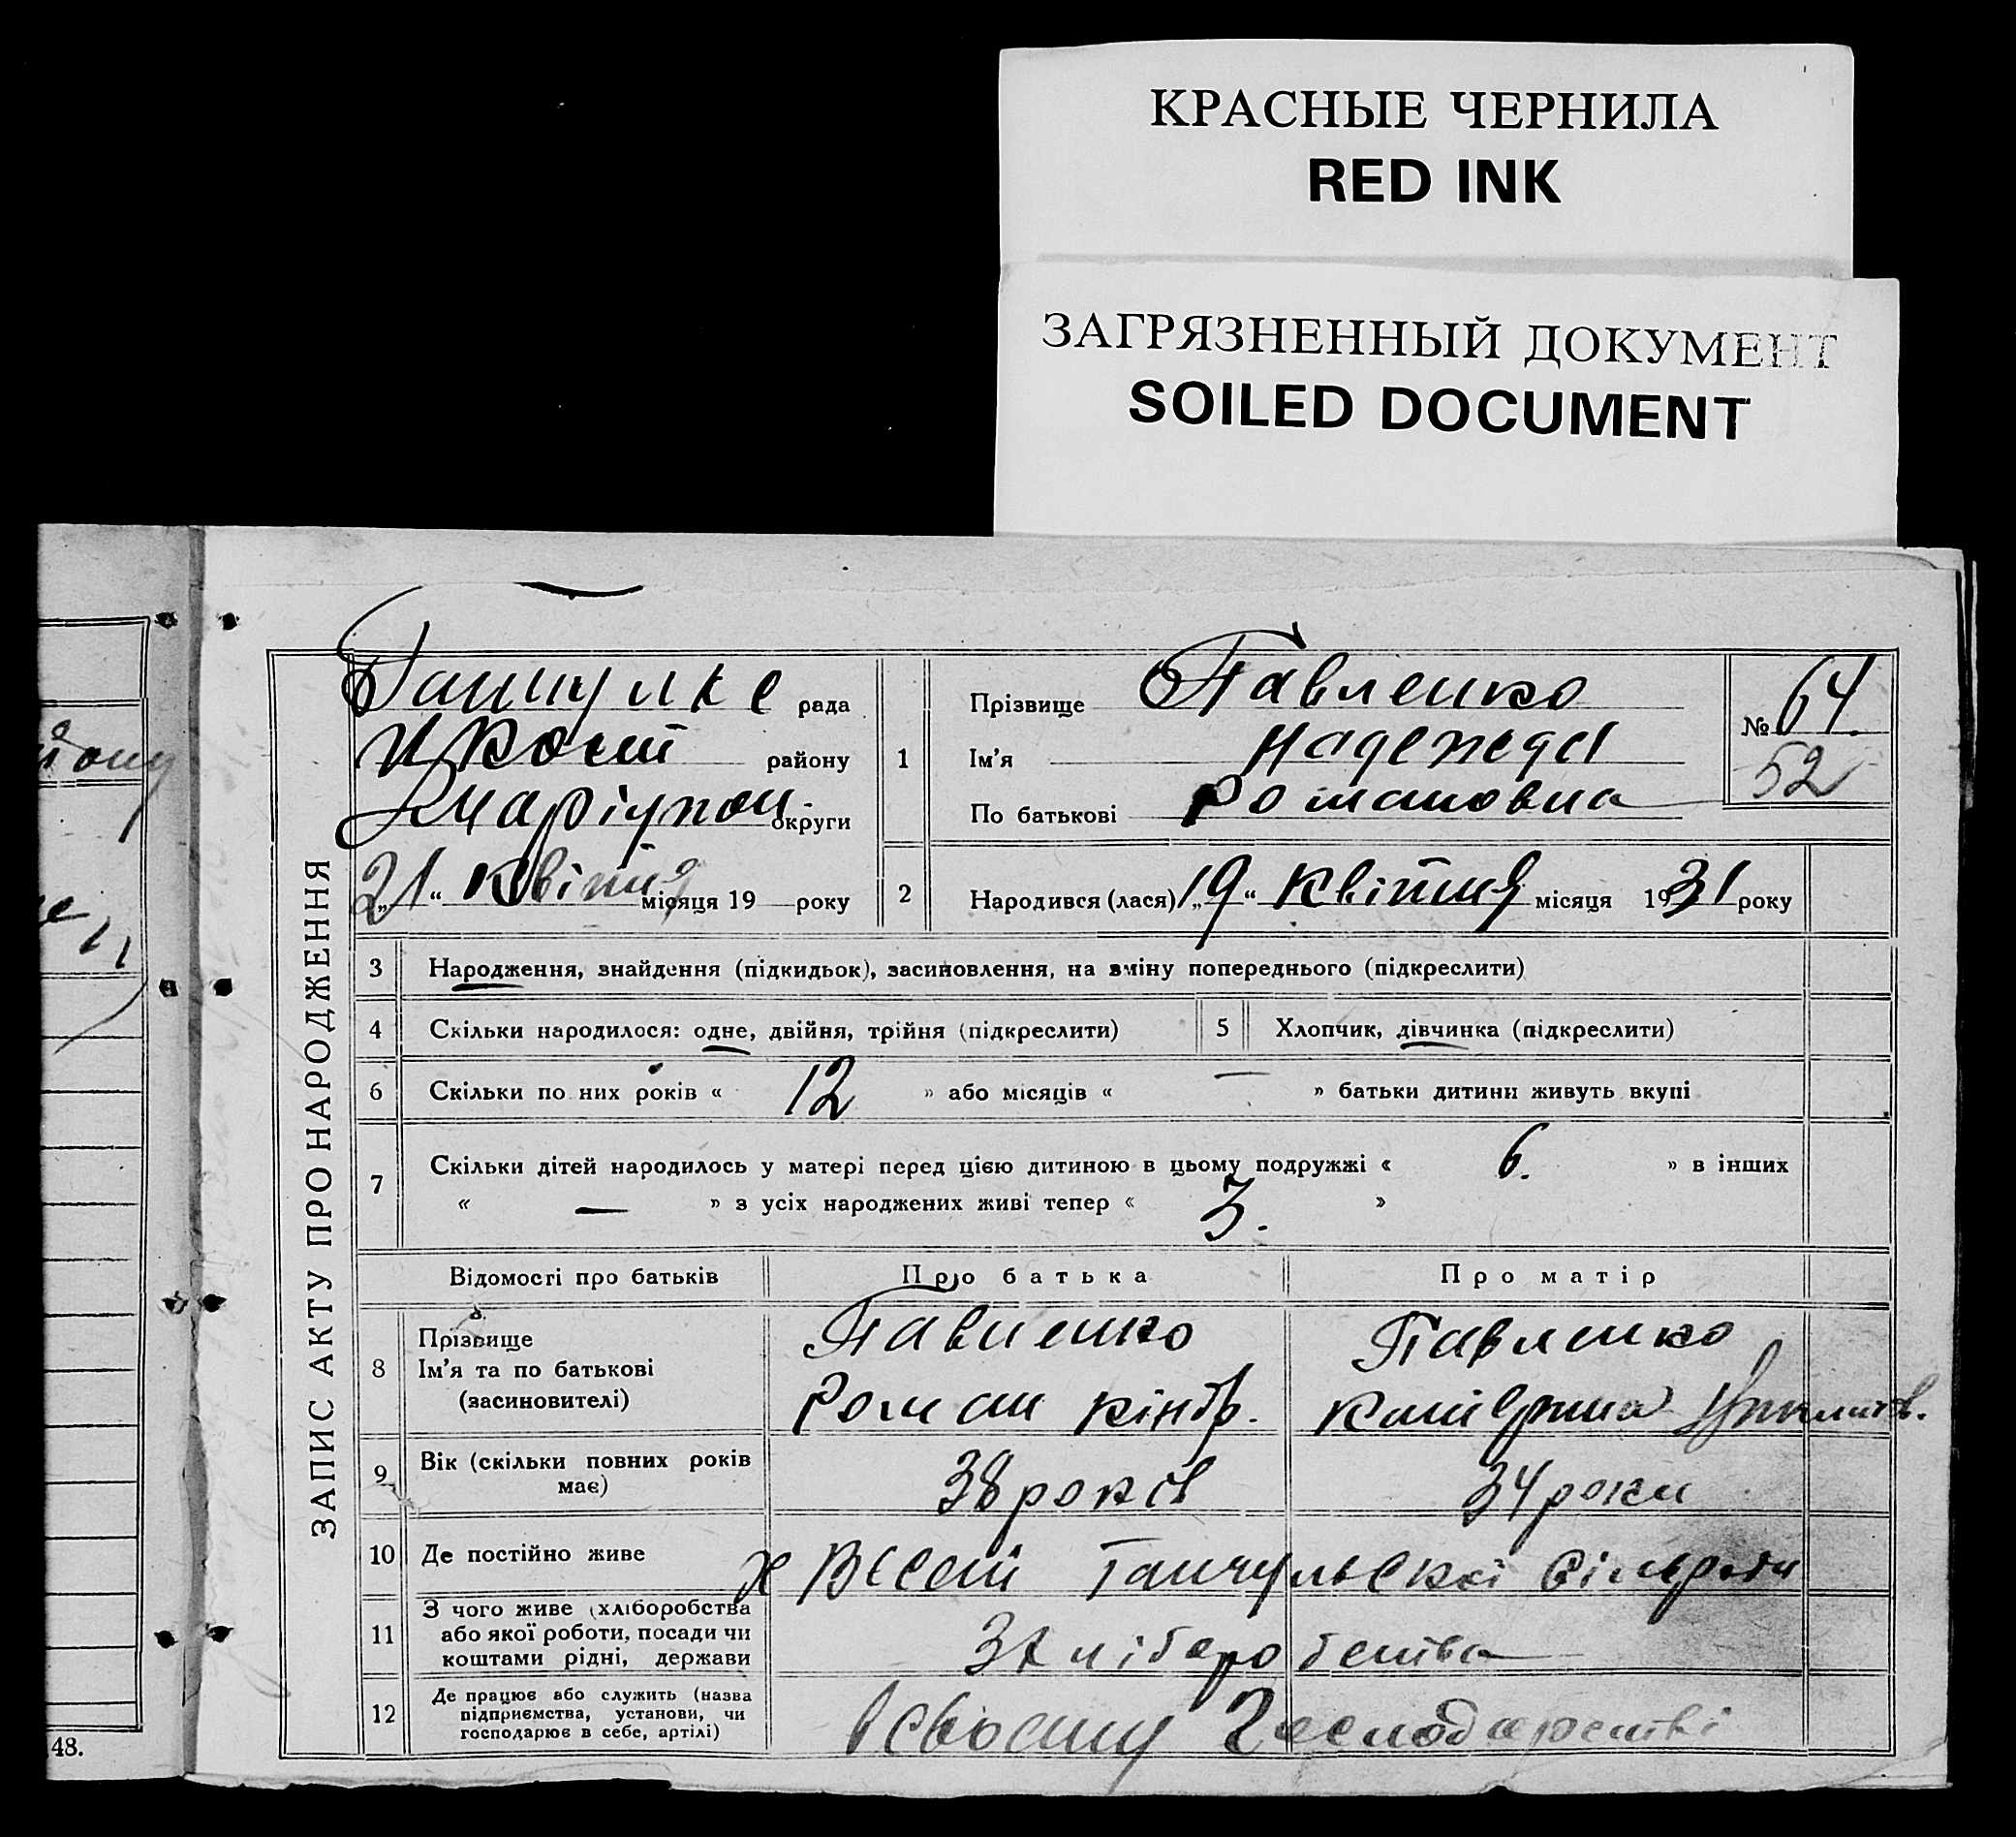 КРАСНЫЕ ЧЕРНИЛА
RED INK
ЗАГРЯЗНЕННЫЙ ДОКУМЕНТ
SOILED DOCUMENT
ЗАПИС АКТУ ПРО НАРОДЖЕННЯ
рада
району
Маріупол. округи
21 “ Квітня місяця 19 року
1
Прізвище Павленко
Ім’я Надежда
По батькові Романовна
№ 64.
52
2
Народився (лася) „19“ Квітня місяця 1931 року
3 Народження, знайдення (підкидьок), засиновлення, на зміну попереднього (підкреслити)
4 Скільки народилося: одне, двійня, трійня (підкреслити) 5 Хлопчик, дівчинка (підкреслити)
6 Скільки по них років « 12 » або місяців « — » батьки дитини живуть вкупі
7 Скільки дітей народилось у матері перед цією дитиною в цьому подружжі « 6. » в інших
« — » з усіх народжених живі тепер « 3. »
Відомості про батьків Про батька Про матір
8 Прізвище
Ім’я та по батькові
(засиновителі)
Павленко
Роман
Павленко
Катерина
9 Вік (скільки повних років має) 38 років 34 роки
10 Де постійно живе х Сільради
11 З чого живе (хліборобства
або якої роботи, посади чи
коштами рідні, держави
З хліборобства
12 Де працює або служить (назва
підприємства, установи, чи
господарює в себе, артілі)
в своєму господарстві
48.